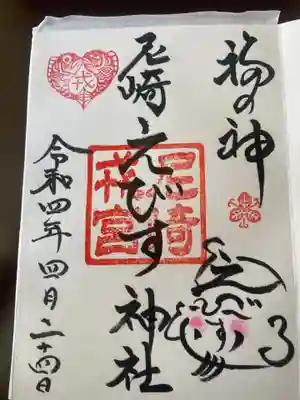 福の神
尼崎えびす神社
尼崎
戎宮
戎
令和四年四月二十四日